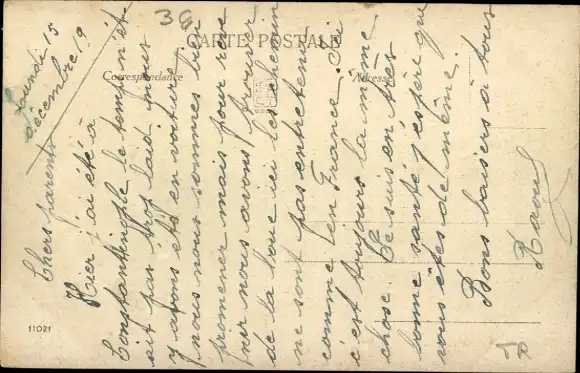 36
CARTE POSTALE
Correspondance
Adresse
11021
Lundi 15
décembre 19
Chers parents
Hier j'ai été à
Constantinople le temps n'ét
ait par trop laid, nous
y avons été en voiture
nous nous sommes bien
promener mais pour reve
ner nous avons trouver
de la boue ici les chemin
ne sont pas entretenu
comme en France. Ici
c'est toujours la même
chose. Je suis en très
bonne santé j'espère que
vous êtes de même.
Bons baisers à tous
Raoul